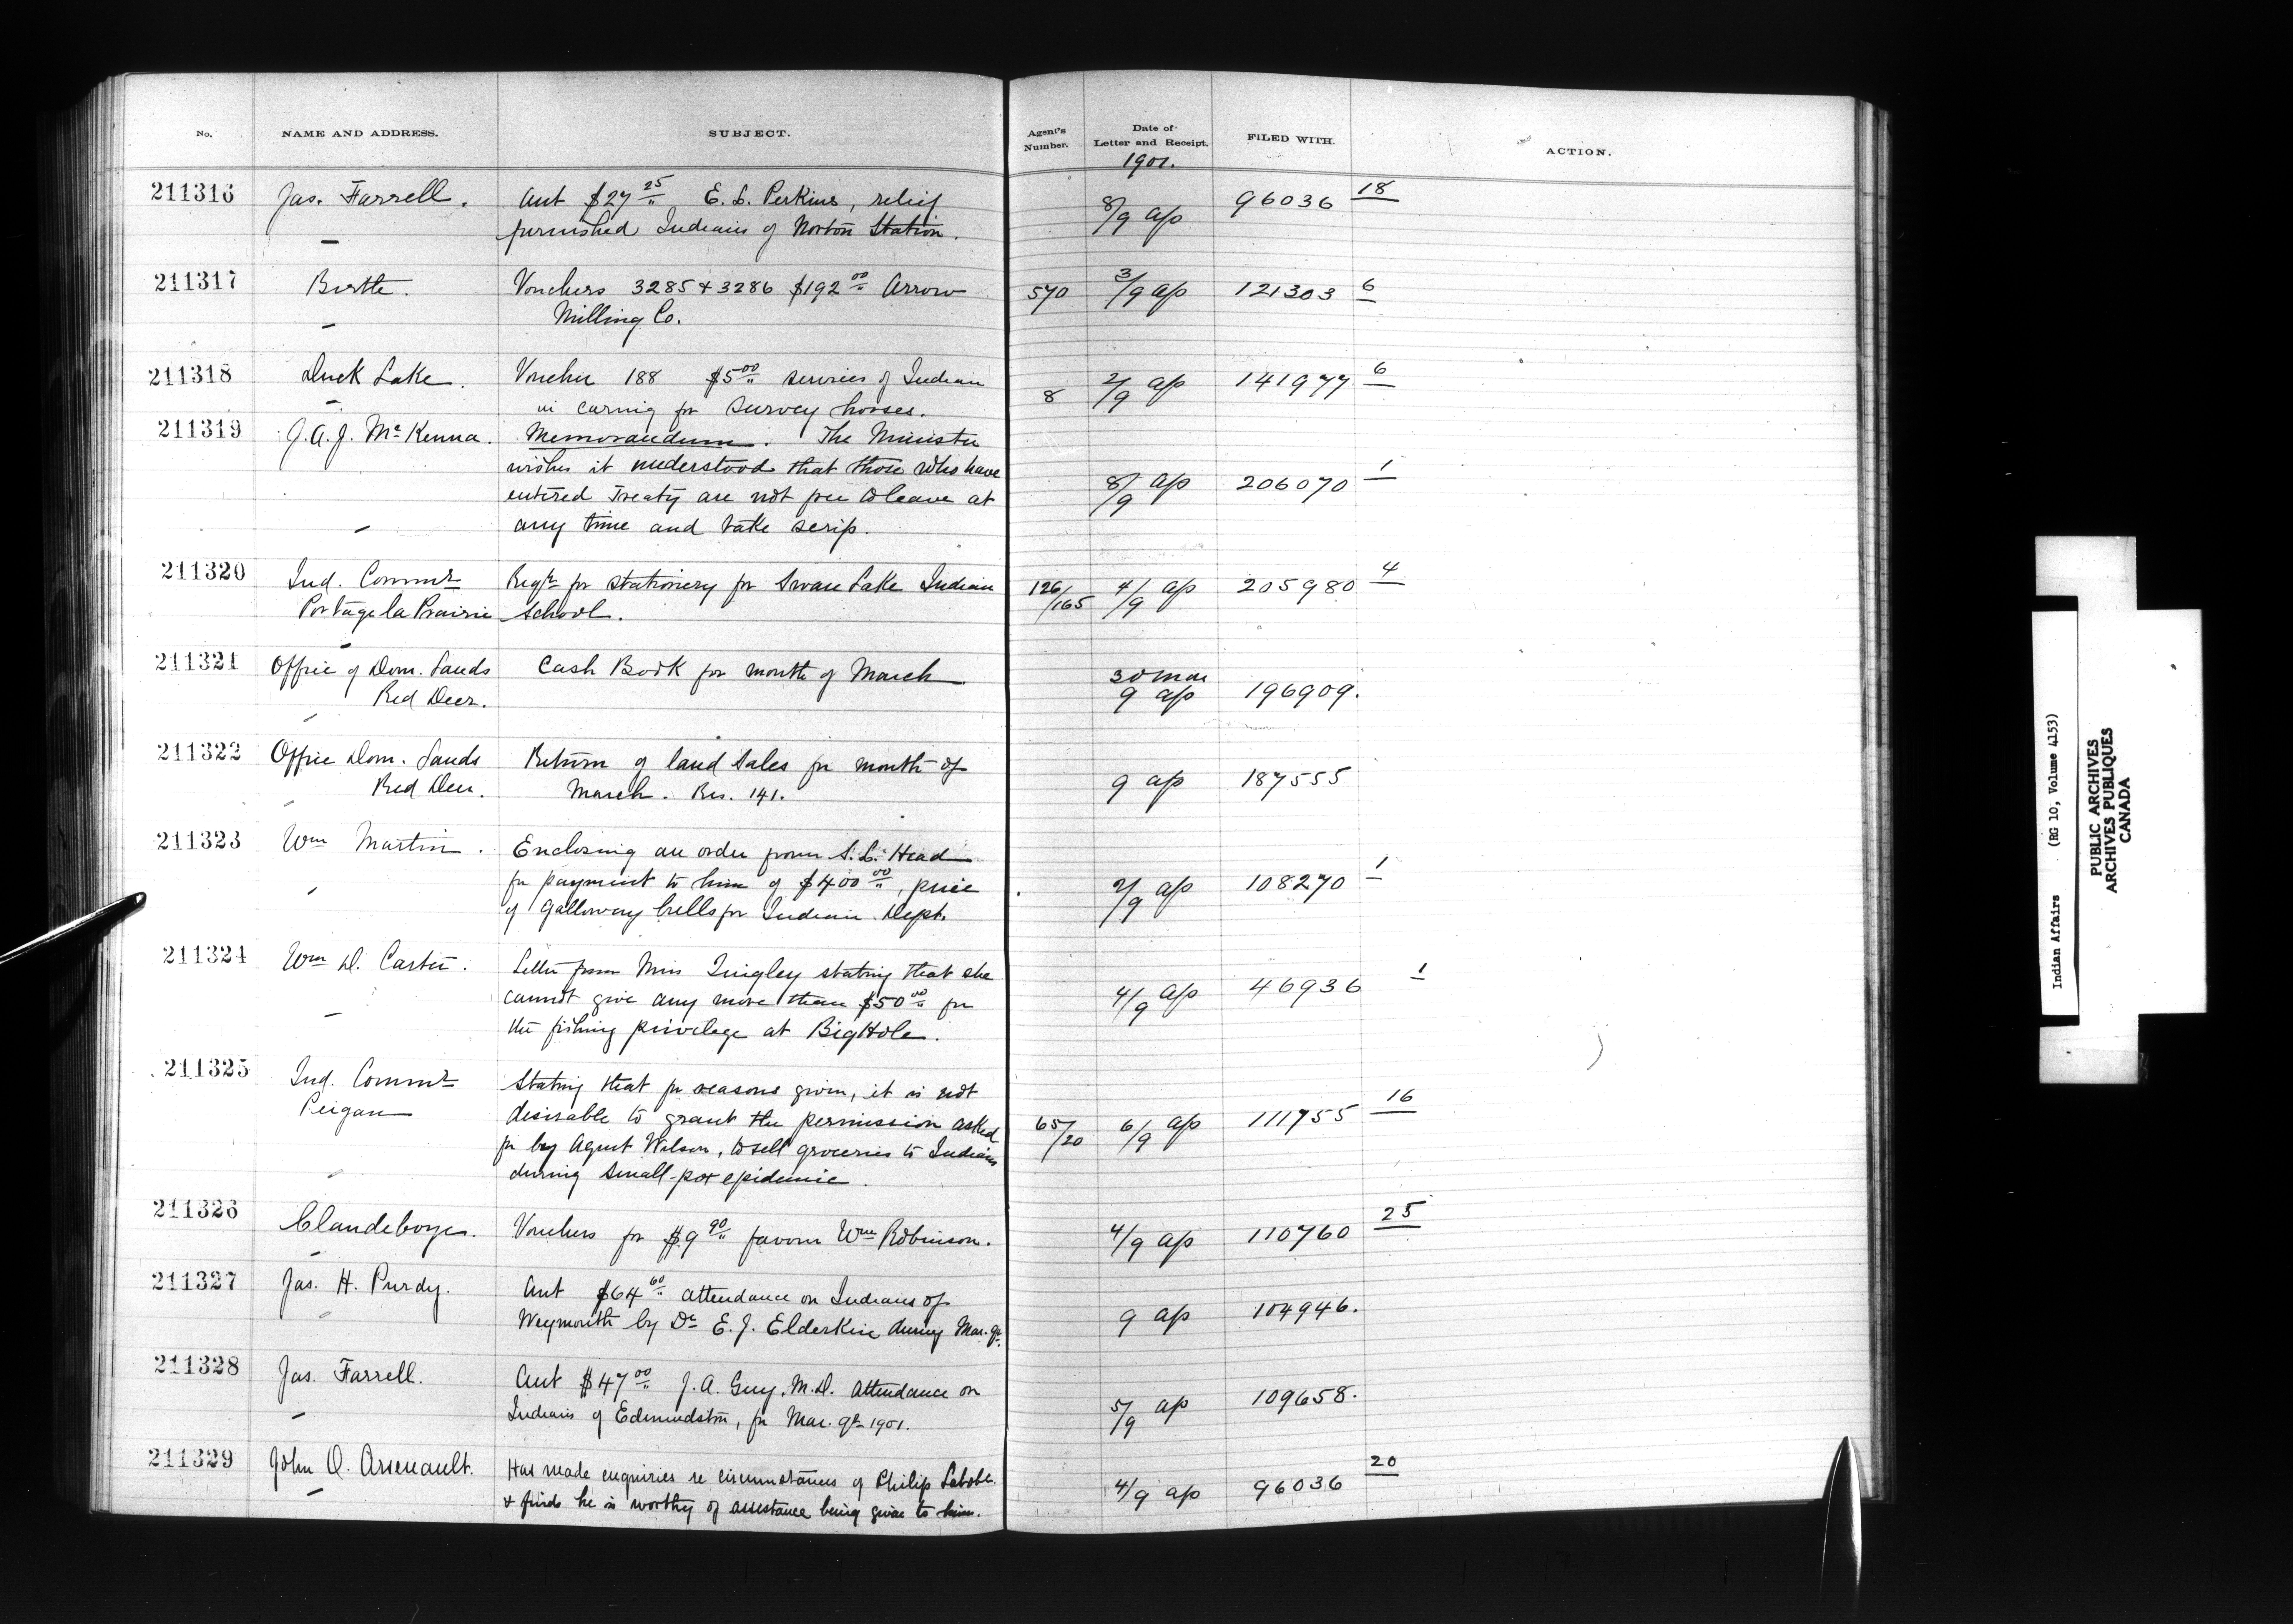 No. NAME AND ADDRESS. SUBJECT. Agent's Number. Date of Letter and Receipt. FILED WITH. ACTION.
1901.
211316 Jas. Farrell. Acct $27 25/" E. S. Perkins, relief 8/9 ap 96036 18
furnished Indians of Norton Station.
211317 Birtle. Vouchers 3285 + 3286 $192 00/" Arrow 570 3/9 ap 121303 6
Milling Co.
211318 Duck Lake. Voucher 188 $5 00/" services of Indian 8 2/9 ap 141977 6
in caring for survey horses.
211319 J. A. J. McKenna. Memorandum. The Minister
wishes it understood that those who have
entered Treaty are not free to leave at 8/9 ap 206070 1
any time and take scrip.
211320 Ind. Commr Reqn for stationery for Swan Lake Indian 126/165 4/9 ap 205980 4
Portage la Prairie School.
211321 Office of Dom. Lands Cash Book for month of March 30 Mar
Red Deer. 9 ap 196909.
211322 Office Dom. Lands Return of land sales for month of
Red Deer. March. Res. 141. 9 ap 187555
211323 Wm Martin. Enclosing an order from S. L. Head
for payment to him of $400 00/", price 2/9 ap 108270 1
of Galloway bulls for Indian Dept.
211324 Wm D. Carter. Letter from Miss Quigley stating that she
cannot give any more than $50 00/" for 4/9 ap 46936 1
the fishing privilege at Big Hole.
211325 Ind. Commr Stating that for reasons given, it is not
Peigan desirable to grant the permission asked 65/20 6/9 ap 111755 16
for by Agent Wilson, to sell groceries to Indians
during small-pox epidemic.
211326 Clandeboye. Vouchers for $9 90/" favour Wm Robinson. 4/9 ap 110760 25
211327 Jas. H. Purdy. Acct $64 60/" attendance on Indians of
Weymouth by Dr E. J. Elderkin during Mar. qr. 9 ap 104946.
211328 Jas. Farrell. Acct $47 00/" J. A. Guy, M.D. attendance on
Indians of Edmundston, for Mar. qr 1901. 5/9 ap 109658.
211329 John O. Arsenault. Has made enquiries re circumstances of Philip Labobe 4/9 ap 96036 20
& finds he is worthy of assistance being given to him.
Indian Affairs (RG 10, Volume 4153)
PUBLIC ARCHIVES
ARCHIVES PUBLIQUES
CANADA